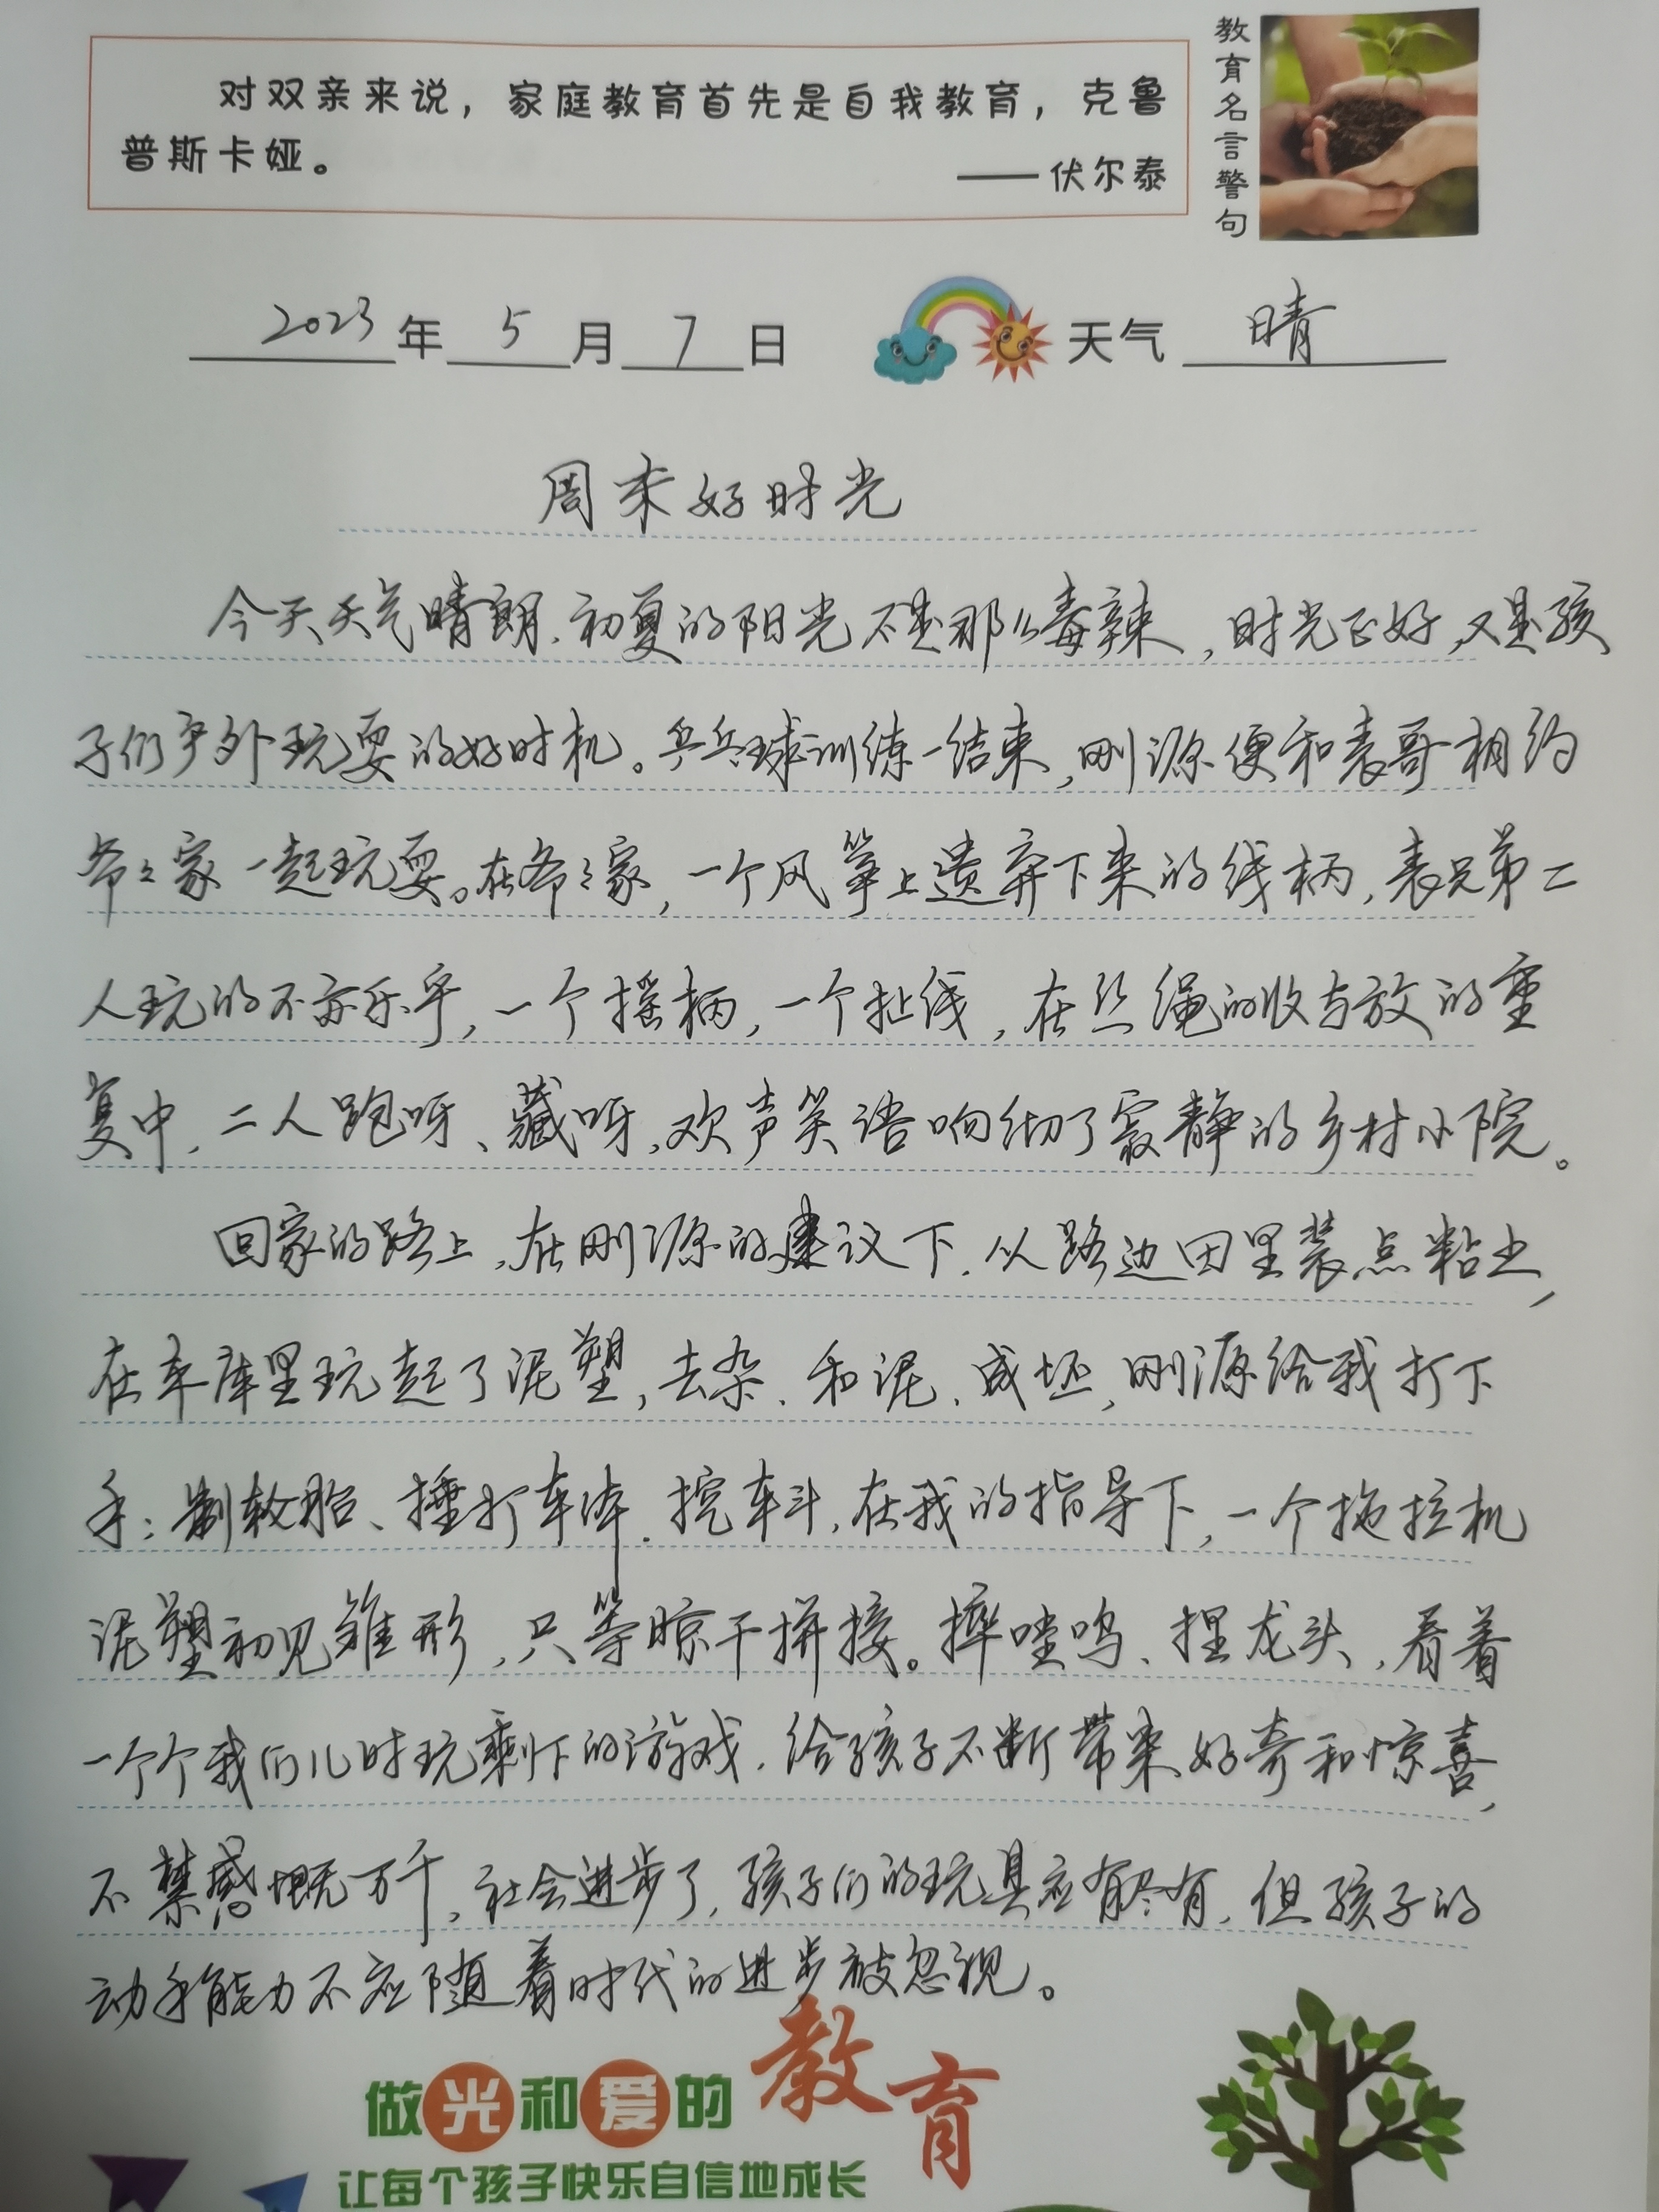 对双亲来说，家庭教育首先是自我教育，克鲁
普斯卡娅。
——伏尔泰
教育名言警句
2023年 5 月 7 日 天气 晴
周末好时光
今天天气晴朗，初夏的阳光不是那么毒辣，时光正好，又是孩
子们户外玩耍的好时机。乒乓球训练一结束，刚源便和表哥相约
爷爷家一起玩耍。在爷爷家，一个风筝上遗弃下来的线柄，表兄弟二
人玩的不亦乐乎，一个摇柄，一个扯线，在丝绳的收与放的重
复中，二人跑呀、藏呀，欢声笑语响彻了寂静的乡村小院。
回家的路上，在刚源的建议下，从路边田里装点粘土，
在车库里玩起了泥塑，去杂、和泥、成坯，刚源给我打下
手：制软胎、捶打车体、挖车斗，在我的指导下，一个拖拉机
泥塑初见雏形，只等晾干拼接。摔哇呜、捏龙头，看着
一个个我们儿时玩剩下的游戏，给孩子不断带来好奇和惊喜，
不禁感慨万千，社会进步了，孩子们的玩具应有尽有，但孩子的
动手能力不应随着时代的进步被忽视。
做光和爱的教育
让每个孩子快乐自信地成长